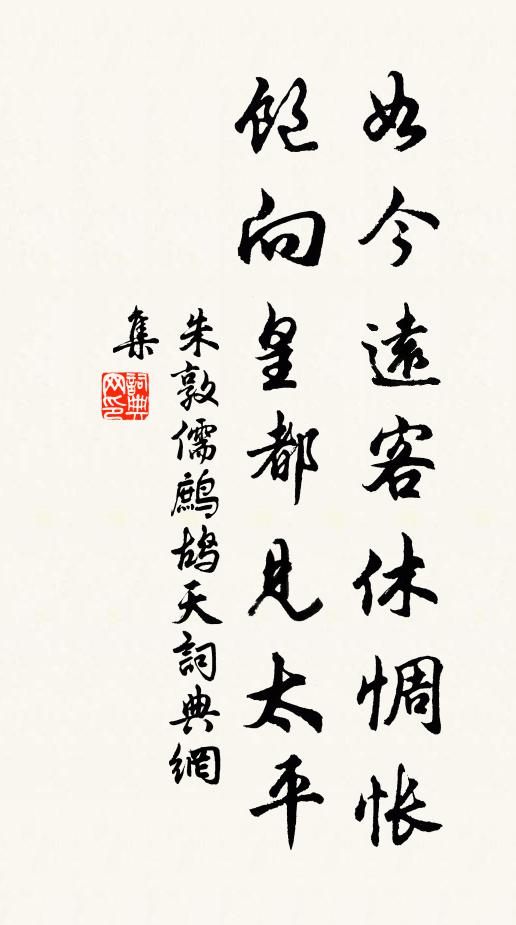 如今遠客休惆悵
飽向皇都見太平
朱敦儒鷓鴣天詞典網
集
詞典网印